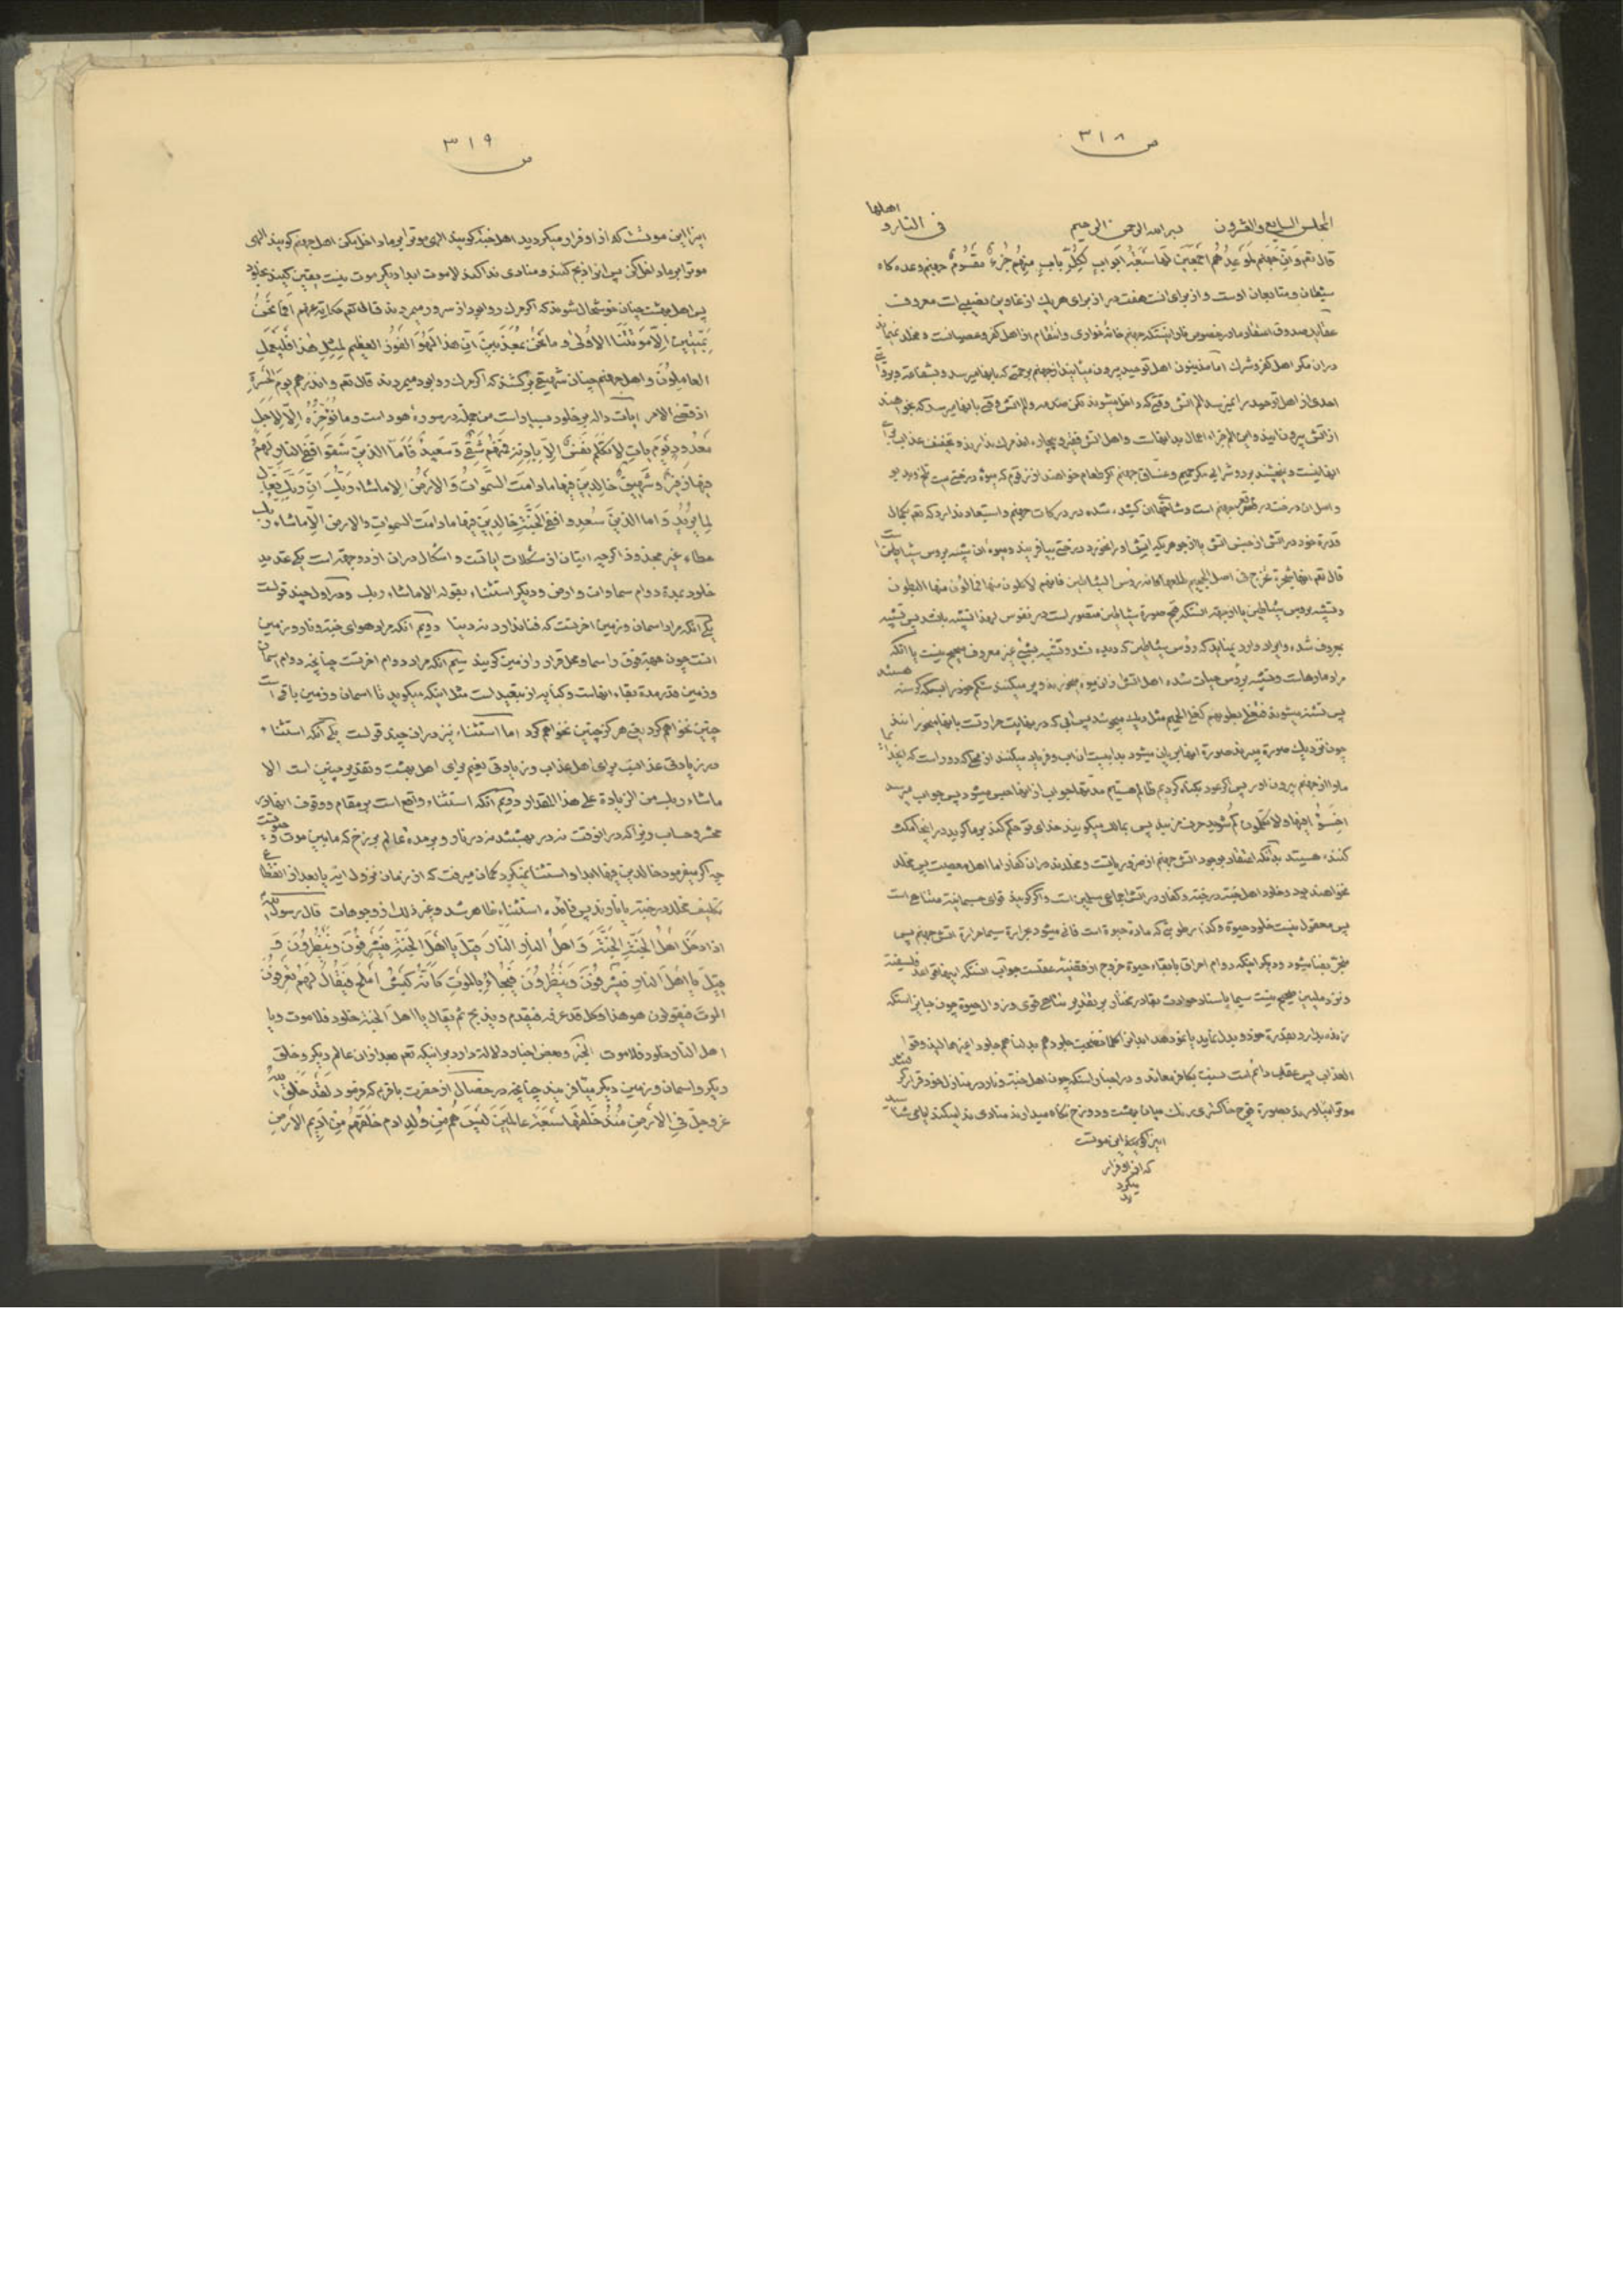 ص ٣١٨
المجلس السابع والعشرون بسم الله الرحمن الرحیم فی النار و اهلها
قال تعم وَاِنَّ جَهَنَّمَ لَمَوعِدُهُم اَجمَعینَ لَها سَبعَةُ اَبوابٍ لِکُلِّ بابٍ مِنهُم جُزءٌ مَقسُومٌ جهنم وعده کاه
شیطان و متابعان اوست و از برای انست هفت در از برای هر یک از غاوین نصیبی است معروف
عقاید صدوق اعتقاد ما در خصوص نار اینستکه جهنم خانهٔ خواری و انتقام از اهل کفر و عصیانست و مخلد نمیماند
در ان مکر اهل کفر و شرک اما مذنبون اهل توحید بیرون میایند از جهنم برحمتی که بانها میرسد و شفاعة
احدی از اهل توحید را نمیرسد الم اتش وقتیکه داخل میشوند لکن میرسد الم اتش وقتی بانها میرسد که میخواهند
از اتش بیرون ایند و این الم جزاء اعمال بد انهاست و اهل اتش فقیر و بیچاره اند مرک ندارند و تخفیف عذاب برای
انها نیست و نچشند برد و شرابی مکر حمیم و غساق جهنم اگر طعام خواهند از زقوم که میوهٔ درختی است تلخ و بدبو
و اصل ان درخت در قعر جهنم است و شاخهای ان کشیده شده در درکات جهنم و استبعاد ندارد که تعم بکمال
قدرة خود در اتش از جنس اتش یا از جوهریکه اتش او را نخورد درختی بیافریند و میوهٔ ان شبیه برؤس شیاطین است
قال تعم انها شجرة تخرج فی اصل الجحیم طلعها کانه رؤس الشیاطین فانهم لاکلون منها فمالؤن منها البطون
و تشبیه برؤس شیاطین یا از جهة انستکه قبح صورة شیاطین متصور است در نفوس لهذا تشبیه بانشد پس تشبیه
بمعروف شده و ایراد وارد نیناید که رؤس شیاطین که دیده نشد و تشبیه بشیئی غیر معروف صحیح نیست یا انکه
مراد مارهاست و تشبیه برؤس حیات شده اهل اتش از ان میوه میخورند و پر میکنند شکم خود را بسکه کرسنه هستند
پس تشنه میشوند فتغلی بطونهم کغلی الحمیم مثل دیک میجوشد پس ابی که در نهایت حرارتست بانها میخورانند
چون نزدیک صورة میبرند صورة انها بریان میشود بدا بهیت ان اب و فریاد میکنند از محلی که دور است که ای خدا
ما را از جهنم بیرون اور پس اکر عود بکناه کردیم ظالم هستیم مدتها جواب از انها حبس میشود پس جواب میرسد
اخسَؤُا فیها ولا تکلمون کم شوید حرف نزنید پس بمالک میکویند خدای تو حکم کند بر ما کوید در اینجا مکث
کننده هستید بدانکه اعتقاد بوجود اتش جهنم از ضروریاتست و مخلدند در ان کفار اما اهل معصیت پس مخلد
نخواهند بود و خلود اهل جنة در جنة و کفار در اتش اجماعی مسلمین است و اکر کویند قوای جسمانیة متناهی است
پس معقول نیست خلود حیوة و کذا رطوبتی که مادة حیوة است فانی میشود بحرارة سیما حرارة اتش جهنم پس
منجر بفنا میشود و دیکر اینکه دوام احراق با بقاء حیوة خروج از قضیه عقلست جواب انستکه اینها قواعد فلسفیة
و نزد ملیین صحیح نیست سیما باسناد حوادث بقادر مختار بر تقدیر تناهی قوی و زوال حیوة چون جایز استکه
زنده بدارد بقدرة خود و بدل نماید یا نمو دهد ابدان کلما نضجت جلودهم بدلناهم جلودا غیرها لیذوقوا
العذاب پس عقاب دائم است نسبت بکافر معاند و در اخبار استکه چون اهل جنة و نار در منازل خود قرار گرفتند
موترا بیاورند بصورة قوچ خاکستری رنک میان بهشت و دوزخ نکاه میدارند منادی ندا میکند ایا می شناسید
اینرا کویند این موتست
که از او فرار
میکرد
ید
ص ٣١٩
اینرا این موتست که از او فرار میکردید اهل جنة کویند الهی موترا بر ما داخل مکن اهل جهنم کویند الهی
موترا بر ما داخل کن پس انرا ذبح کنند و منادی ندا کند لا موت ابدا دیکر موت نیست یقین کنید بخلود
پس اهل بهشت چنان خوشحال شوند که اگر مرک روا بود از سرور میمردند قال تعم حکایة عنهم اَفَما نَحنُ
بِمَیِّتینَ اِلّا مَوتَتَنا الاُولی وما نَحنُ بمُعَذَّبینَ اِنَّ هذا لَهُوَ الفَوزُ العظیم لِمِثلِ هذا فَلیَعمَلِ
العامِلُونَ و اهل جهنم چنان شهیقی برکشند که اکر مرک روا بود میمردند قال تعم وانذرهم یَومَ الحَسرَةِ
اذ قضی الامر ایات داله بر خلود بسیار است من جمله در سورهٔ هود است وما نُؤَخِّرُهُ اِلّا لِاَجَلٍ
مَعدُودٍ یَومَ یَاتِ لا تَکَلَّمُ نَفسٌ اِلّا بِاِذنِهِ فَمِنهُم شَقِیٌّ وَسَعیدٌ فَاَمّا الذینَ شَقَوا فَفِی النارِ لَهُم
فیها زَفیرٌ وَشَهیقٌ خالِدینَ فیها مادامَتِ السَّمواتُ وَالاَرضُ اِلا ماشاءَ رَبُّکَ اِنَّ رَبَّکَ فَعّالٌ
لِما یُریدُ وَاما الذینَ سُعِدوا فَفِی الجَنَّةِ خالِدینَ فیها مادامَتِ السمواتُ والارضُ اِلّا ماشاءَ ربک
عطاء غیر مجذوذ اکرچه اتیان از مشکلات ایاتست و اشکال در ان از دو جهة است یکی تحدید
خلود بمدة دوام سماوات و ارض و دیکر استثناء بقوله الا ماشاء ربک و در اول چند قولست
یکی انکه مراد اسمان و زمین اخرتست که فنا ندارد نه دنیا دویم انکه مراد هوای جنة و نار و زمین
انست چون جهة فوق را سما و محل قرار را زمین کویند سیم انکه مراد دوام اخرتست چنانچه دوام اسمان
و زمین قدر مدة بقاء انهاست و کنایه از تبعید است مثل اینکه میکوید تا اسمان و زمین باقی است
چنین نخواهم کرد یعنی هرکز چنین نخواهم کرد اما استثناء نیز در ان چند قولست یکی انکه استثناء
در زیادتی عذابست برای اهل عذاب و زیادتی نعیم برای اهل بهشت و تقدیر چنین است الا
ماشاء ربک من الزیادة علی هذا المقدار دویم انکه استثناء واقع است بر مقام و وقوف انها در
محشر و حساب زیرا که در انوقت نه در بهشتند نه در نار و بر مدة عالم برزخ که مابین موت و
چه اکر میفرمود خالدین فیها ابدا و استثنا نمیکرد کمان میرفت که از زمان نزول ایة یا بعد از انقطاع
تکلیف مخلد در جنة یا نارند پس فائده استثناء ظاهر شد و غیر ذلک از وجوهات قال رسول الله
اذا دَخَلَ اَهلُ الجَنَّةِ الجَنَّةَ وَاَهلُ النارِ النّارَ قیلَ یا اَهلَ الجَنَّةِ فَیَشرِفُونَ وَیَنظُرُونَ وَ
قیلَ یا اَهلَ النارِ فَیَشرِفُونَ وَیَنظُرُونَ فَیُجاءُ بِالمَوتِ کَاَنَّهُ کَبشٌ اَملَح فَیُقالُ لَهُم تَعرِفُونَ
الموت فیقولون هو هذا وکل قد عرفه فیقدم ویذبح ثم یقال یا اهل الجنة خلود فلا موت ویا
اهل النار خلود فلا موت الخبر و بعض اخبار دلالة دارد بر اینکه تعم بعد از ان عالم دیکر و خلق
دیکر و اسمان و زمین دیکر میافریند چنانچه در خصال از حضرت باقر ع که فرمود لَقَد خَلَقَ الله
عزوجل فی الاَرضِ مُنذُ خَلَقَها سَبعَةَ عالَمینَ لَیسَ هُم مِن وُلدِ ادم خَلَقَهُم مِن اَدیمِ الاَرضِ